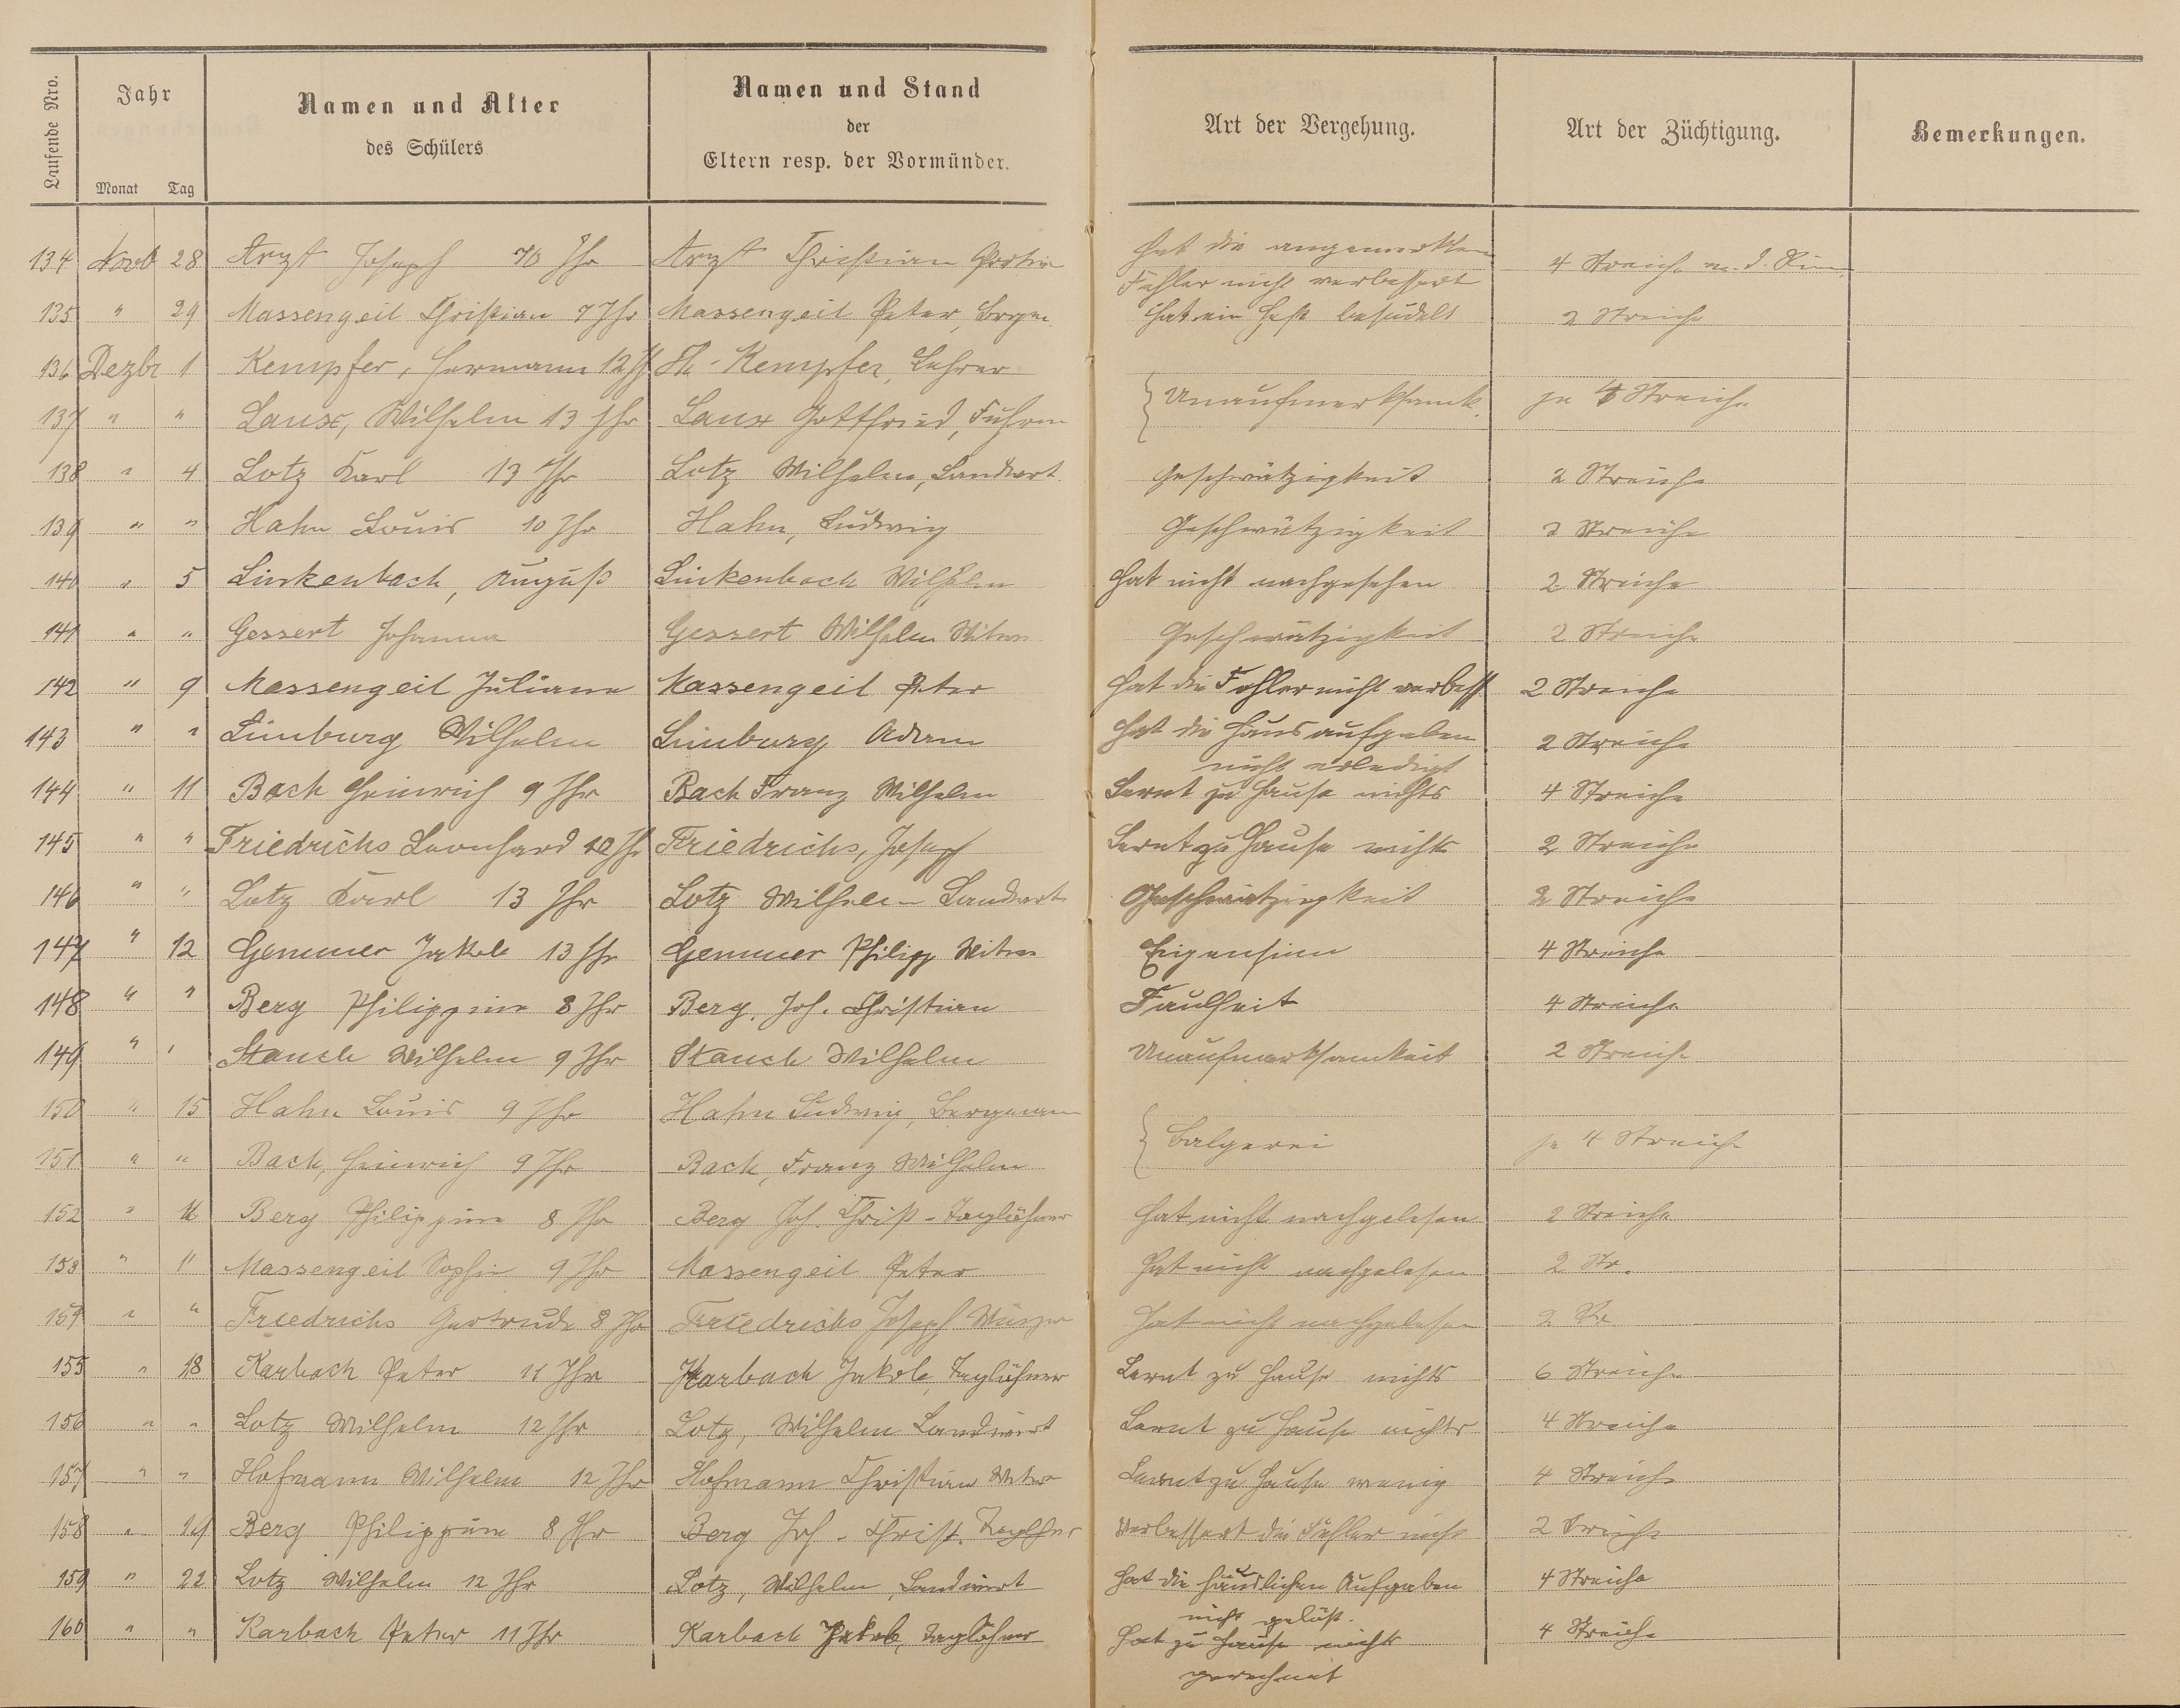 Laufende Nro.
Jahr
Monat Tag
Namen und Alter
des Schülers
Namen und Stand
der
Eltern resp. der Vormünder.
Art der Vergehung.
Art der Züchtigung.
Bemerkungen.
134 Novb 28 Arzt Joseph 10 Jhr Arzt Christian hat die angemerkten Fehler nicht verbessert 4 Streiche m. d.
135 " 29 Massengeil Christian 7 Jhr Massengeil Peter, Bergm. hat ein Heft besudelt 2 Streiche
136 Dezbr 1 Kempfer, Hermann 12 J. Kempfer, Lehrer
137 " " Laux, Wilhelm 13 Jhr Laux Gottfried, Fuhrm } Unaufmerksamk. je 4 Streiche
138 " 4 Lotz Karl 13 Jhr Lotz Wilhelm, Landwirt Geschwätzigkeit 2 Streiche
139 " " Hahn Louis 10 Jhr Hahn, Ludwig Geschwätzigkeit 2 Streiche
140 " 5 Linkenbach, August Linkenbach Wilhelm hat nicht nachgesehen 2 Streiche
141 " " Gessert Johanna Gessert Wilhelm Witwe Geschwätzigkeit 2 Streiche
142 " 9 Massengeil Juliane Massengeil Peter hat die Fehler nicht verbess 2 Streiche
143 " " Limburg Wilhelm Limburg Adam hat die Hausaufgaben nicht erledigt 2 Streiche
144 " 11 Bach Heinrich 9 Jhr Bach Franz Wilhelm Lernt zu Hause nichts 4 Streiche
145 " " Friedrichs Leonhard 10 Jhr Friedrichs, Joseph Lernt zu Hause nichts 2 Streiche
146 " " Lotz Karl 13 Jhr Lotz Wilhelm Landwirt Geschwätzigkeit 2 Streiche
147 " 12 Gemmer Jakob 13 Jhr Gemmer Philipp Witwe Eigensinn 4 Streiche
148 " " Berg Philippine 8 Jhr Berg, Joh. Christian Faulheit 4 Streiche
149 " " Stauch Wilhelm 9 Jhr Stauch Wilhelm Unaufmerksamkeit 2 Streiche
150 " 15 Hahn Louis 9 Jhr Hahn Ludwig, Bergmann
151 " " Bach, Heinrich 9 Jhr Bach, Franz Wilhelm } Balgerei je 4 Streiche
152 " 16 Berg Philippine 8 Jhr Berg Joh. Christ - Taglöhner hat nicht nachgelesen 2 Streiche
153 " " Massengeil Sophie 9 Jhr Massengeil Peter hat nicht nachgelesen 2 Str.
154 " " Friedrichs Gertrude 8 Jhr Friedrichs Joseph Winzer hat nicht nachgelesen 2 Str
155 " 18 Karbach Peter 11 Jhr Karbach Jakob, Taglöhner Lernt zu Hause nichts 6 Streiche
156 " " Lotz Wilhelm 12 Jhr Lotz, Wilhelm Landwirt Lernt zu Hause nichts 4 Streiche
157 " " Hofmann Wilhelm 12 Jhr Hofmann Christian Witwe Lernt zu Hause wenig 4 Streiche
158 " 19 Berg Philippine 8 Jhr Berg Joh. Christ. Taglöhner Verbessert die Fehler nicht 2 Streiche
159 " 22 Lotz Wilhelm 12 Jhr Lotz, Wilhelm, Landwirt hat die häuslichen Aufgaben nicht gelöst. 4 Streiche
160 " " Karbach Peter 11 Jhr Karbach Jakob, Taglöhner hat zu Hause nichts gerechnet 4 Streiche